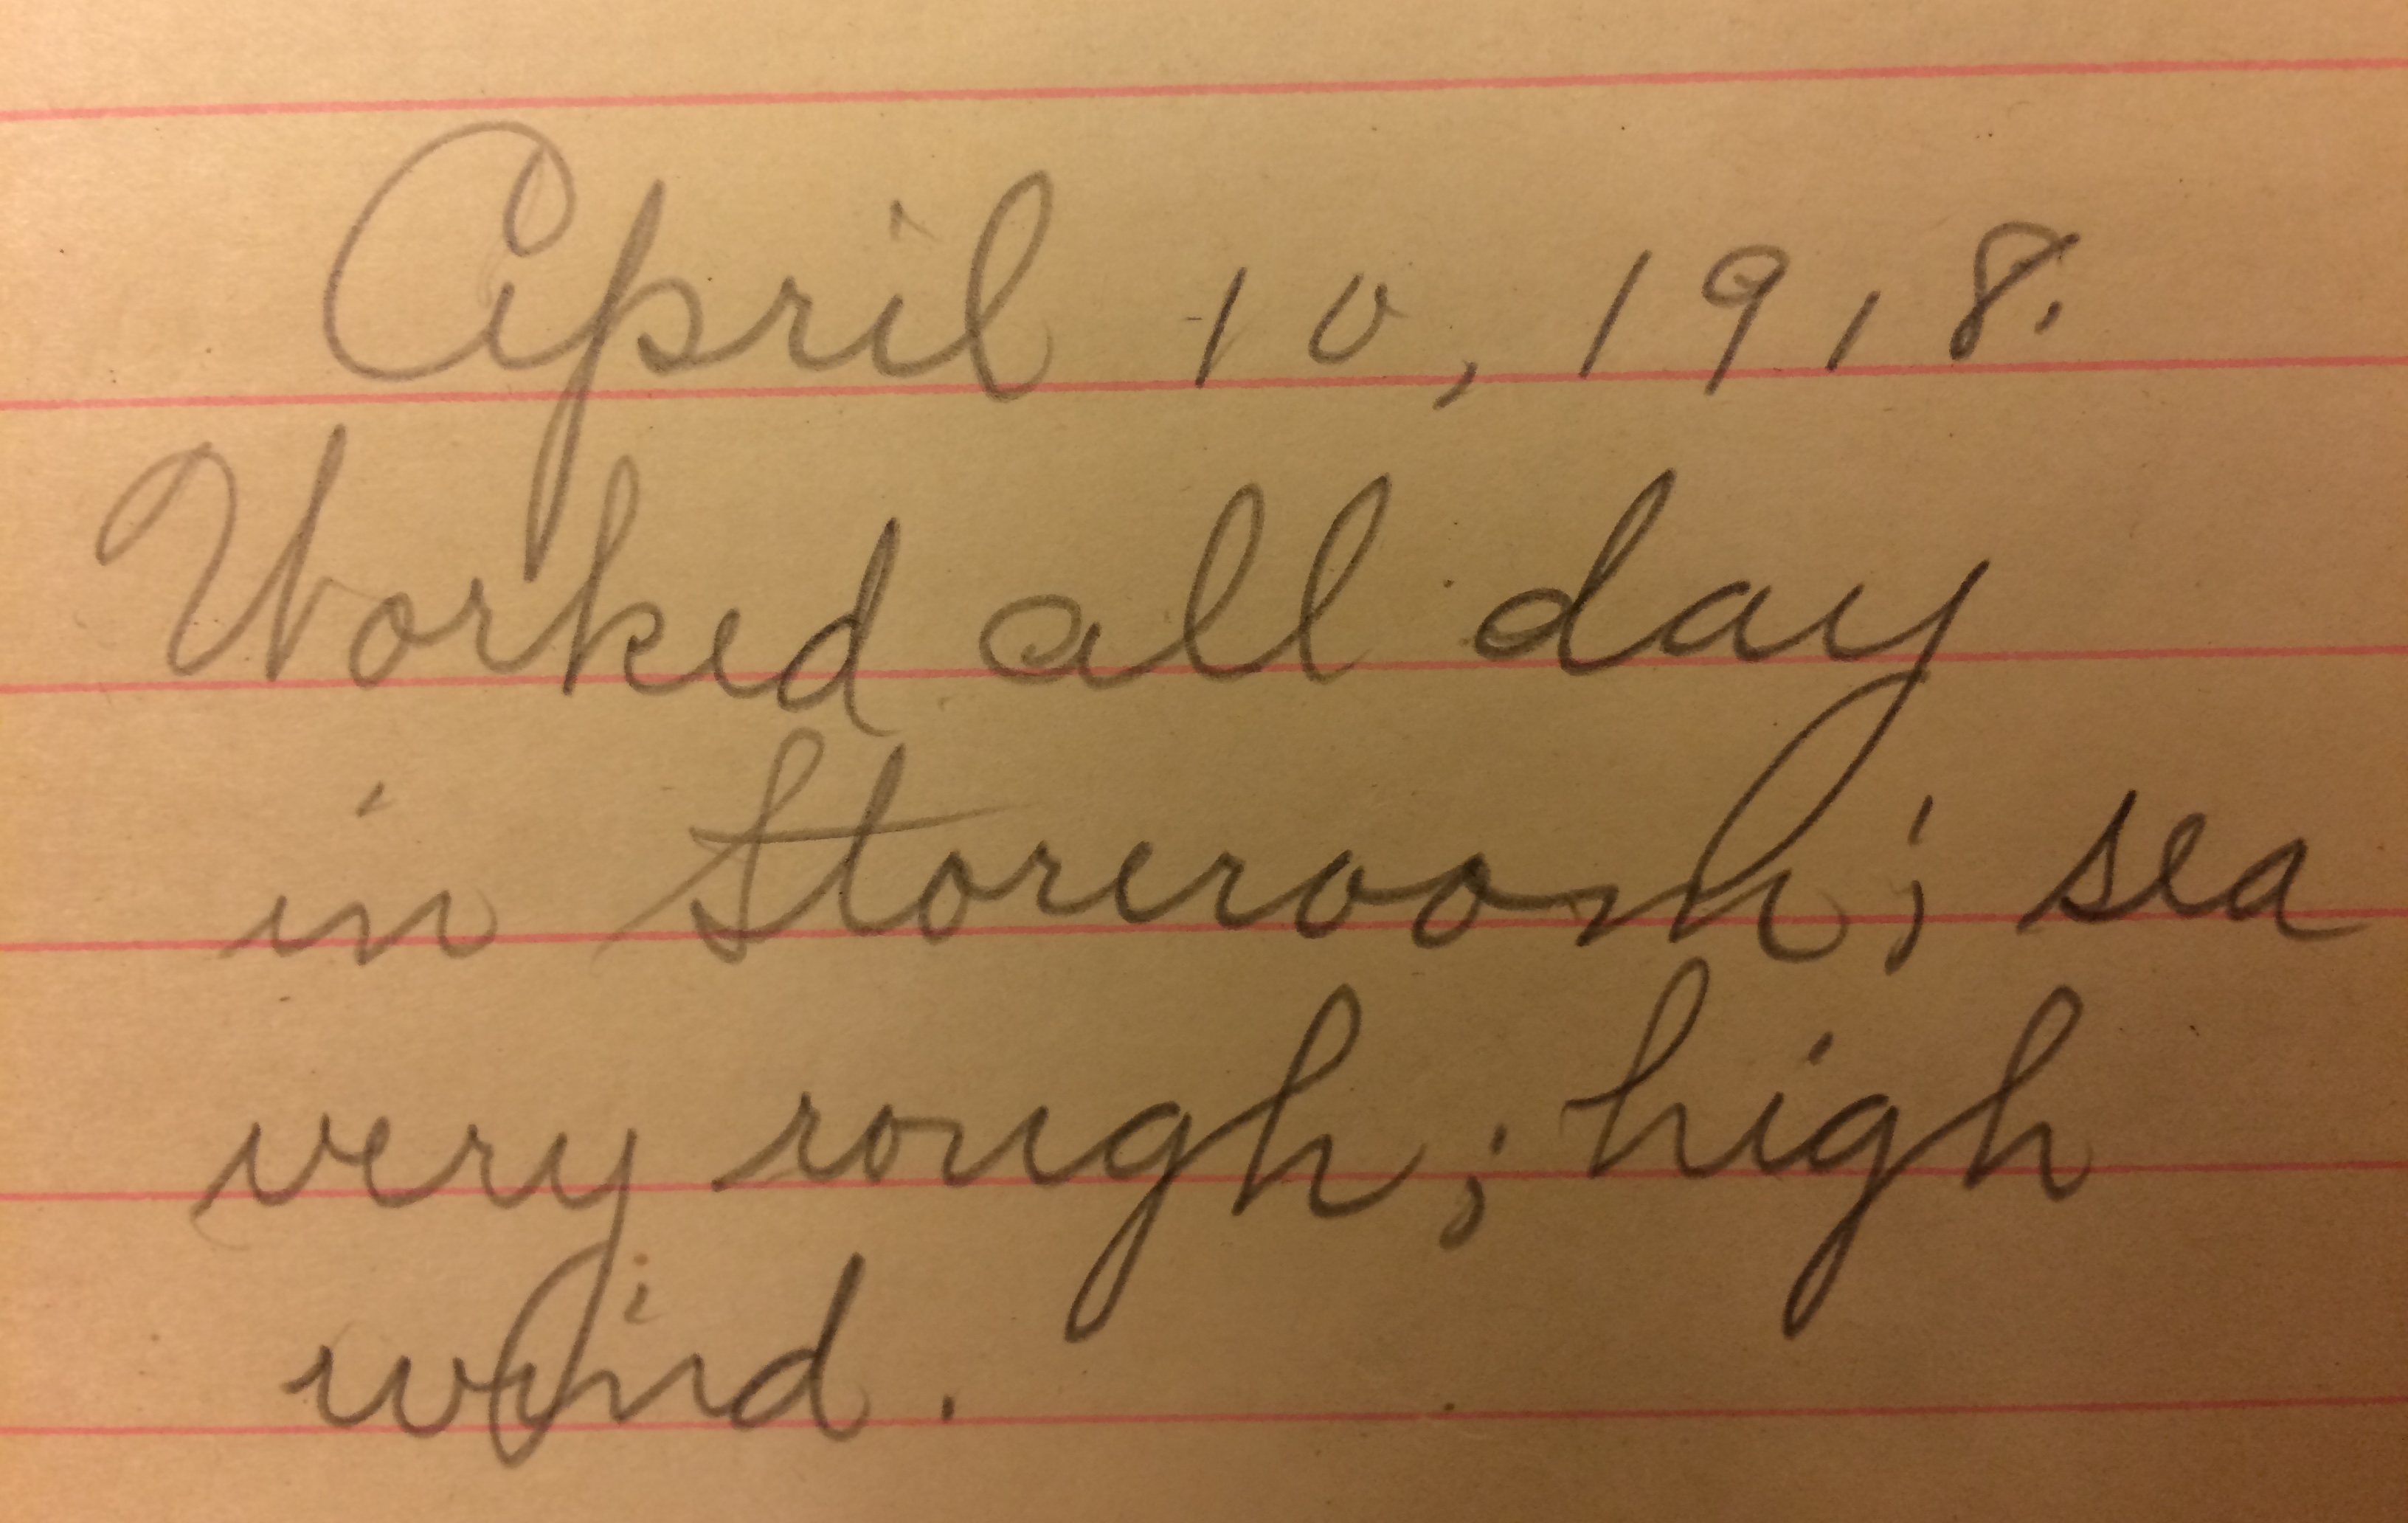 April 10, 1918.
Worked all day
in Storeroom; sea
very rough; high
wind.